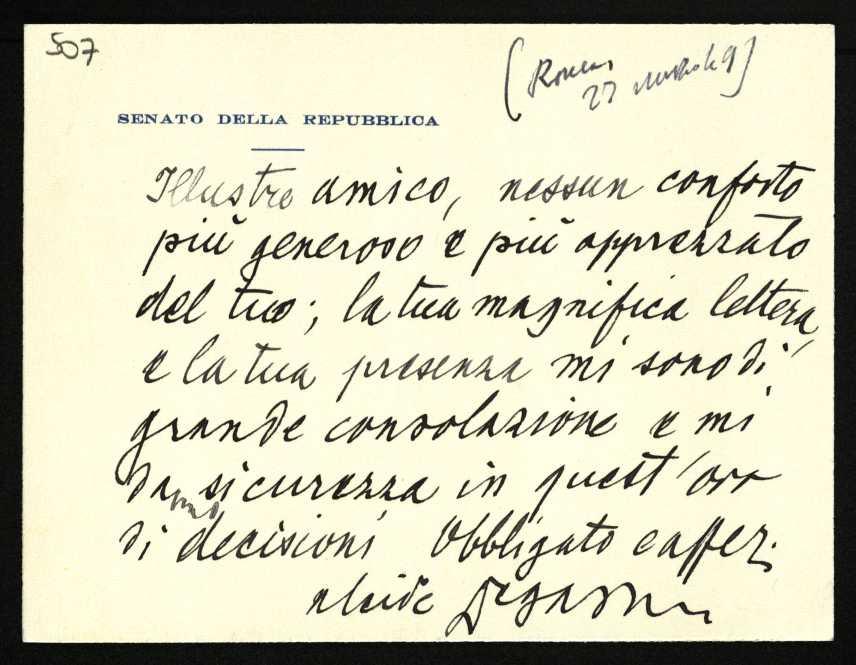 507
(Roma,
27 marzo 49)
SENATO DELLA REPUBBLICA
Illustre amico, nessun conforto
più generoso e più apprezzato
del tuo; la tua magnifica lettera,
e la tua presenza mi sono di
grande consolazione e mi
danno sicurezza in quest'ora
di decisioni Obbligato e affez.
alcide Degasperi